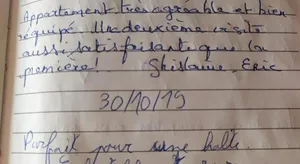 Appartement très agréable et bien
équipé. Une deuxième visite
aussi satisfaisante que la
première! Ghislaine, Eric
30/10/19
Parfait pour une halte.